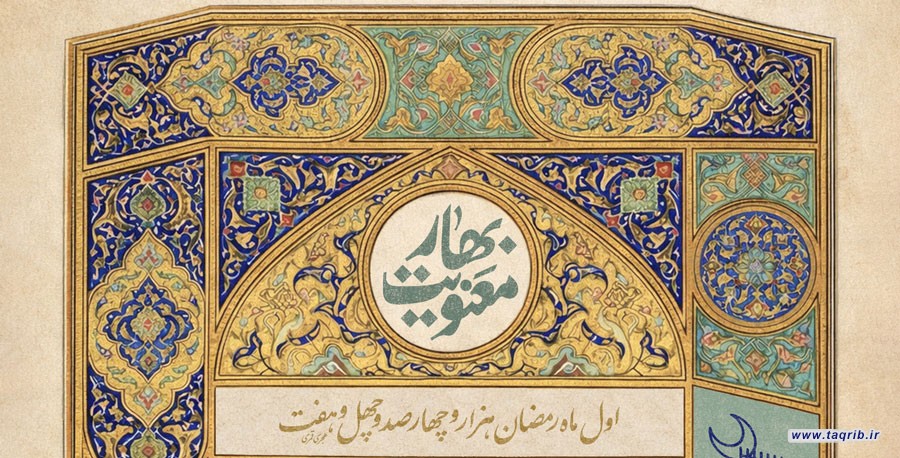 بهار
معنویت
اول ماه رمضان هزار و چهارصد و چهل و هفت
هجری قمری
www.taqrib.ir